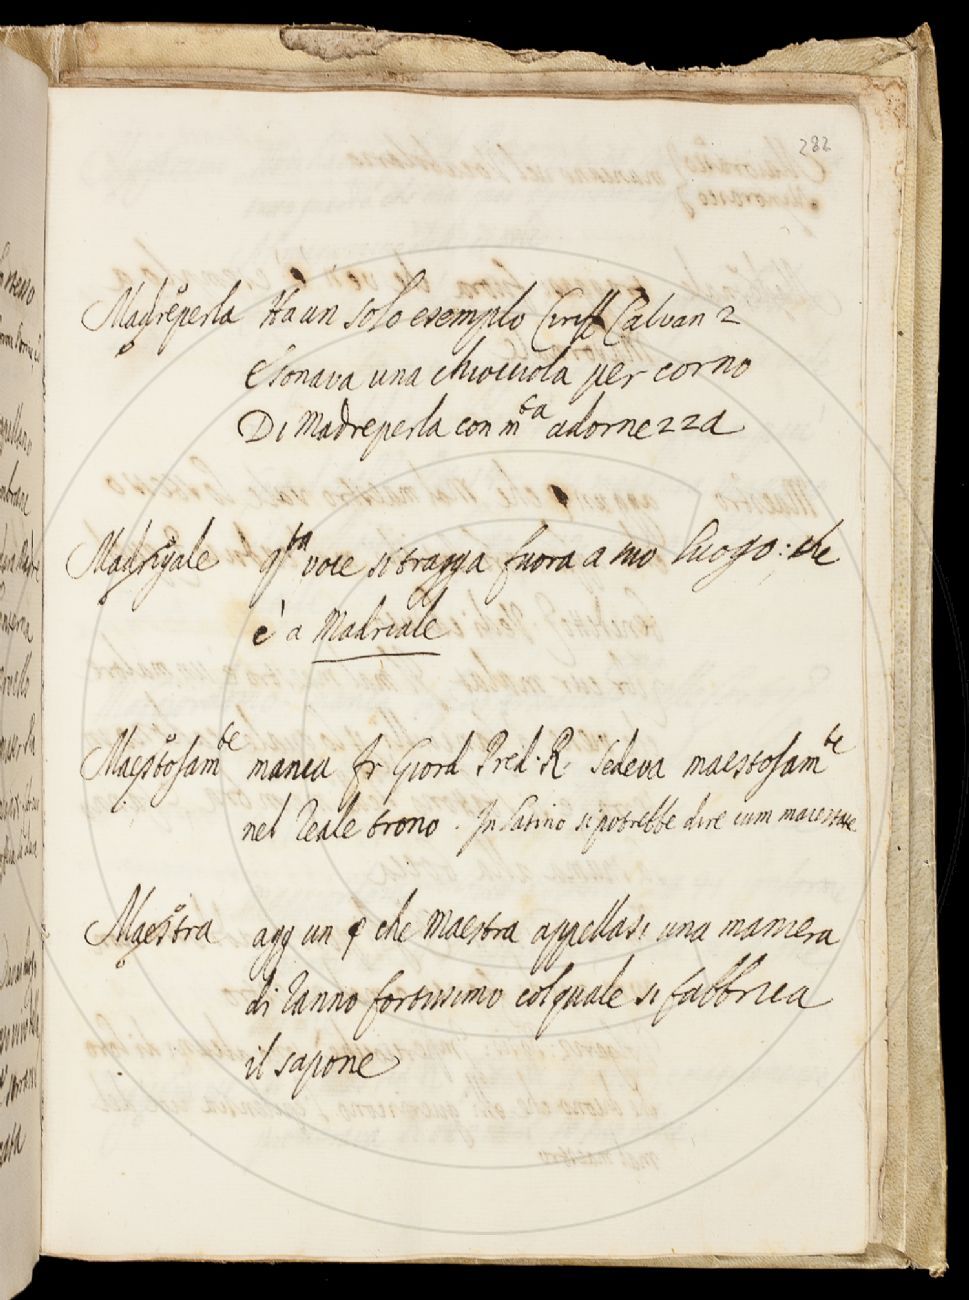 282
Madreperla Ha un solo esemplo Ciriff Calvan 2
E sonava una chiocciola per corno
Di Madreperla con mta adornezza
Madrigale qsta voce si tragga fuora a suo luogo: che
è a Madriale
Maestosamte manca fr Giord Pred. R. Sedeva maestosamte
nel Reale trono. In Latino si potrebbe dire cum maiestate
Maestra agg un § che Maestra appellasi una maniera
di Ranno fortissimo col quale si fabbrica
il sapone